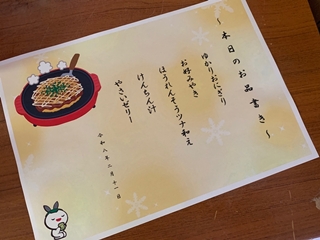 ～本日のお品書き～
ゆかりおにぎり
お好みやき
ほうれんそうツナ和え
けんちん汁
やさいゼリー
令和八年二月十一日